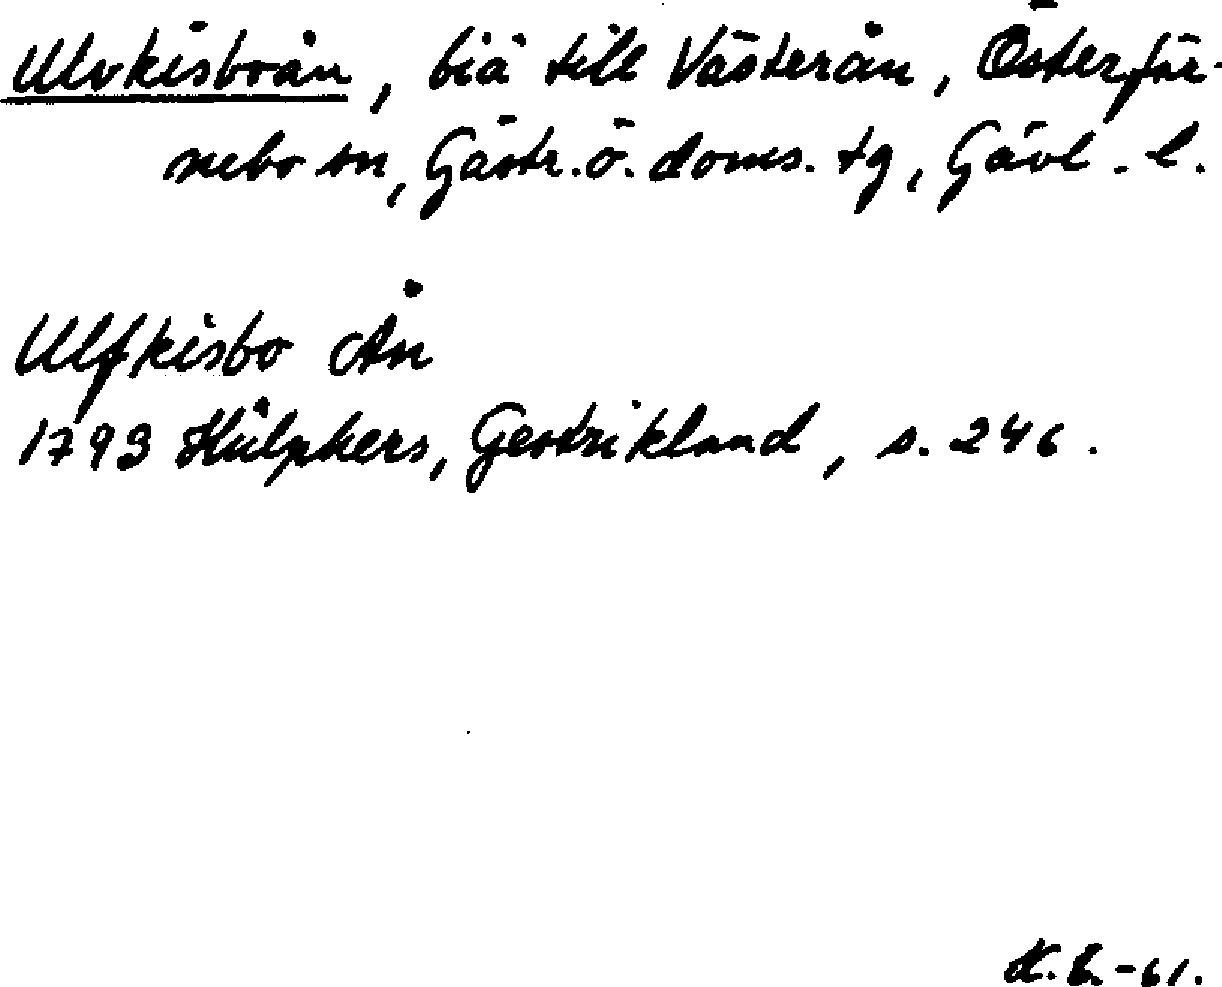 Ulvkisboån, biå till Västerån, Österfär-
nebo sn, Gästr. ö. doms. tg, Gävl. l.
Ulfkisbo Ån
1793 Hülphers, Gestrikland, s. 246.
K. B. -61.